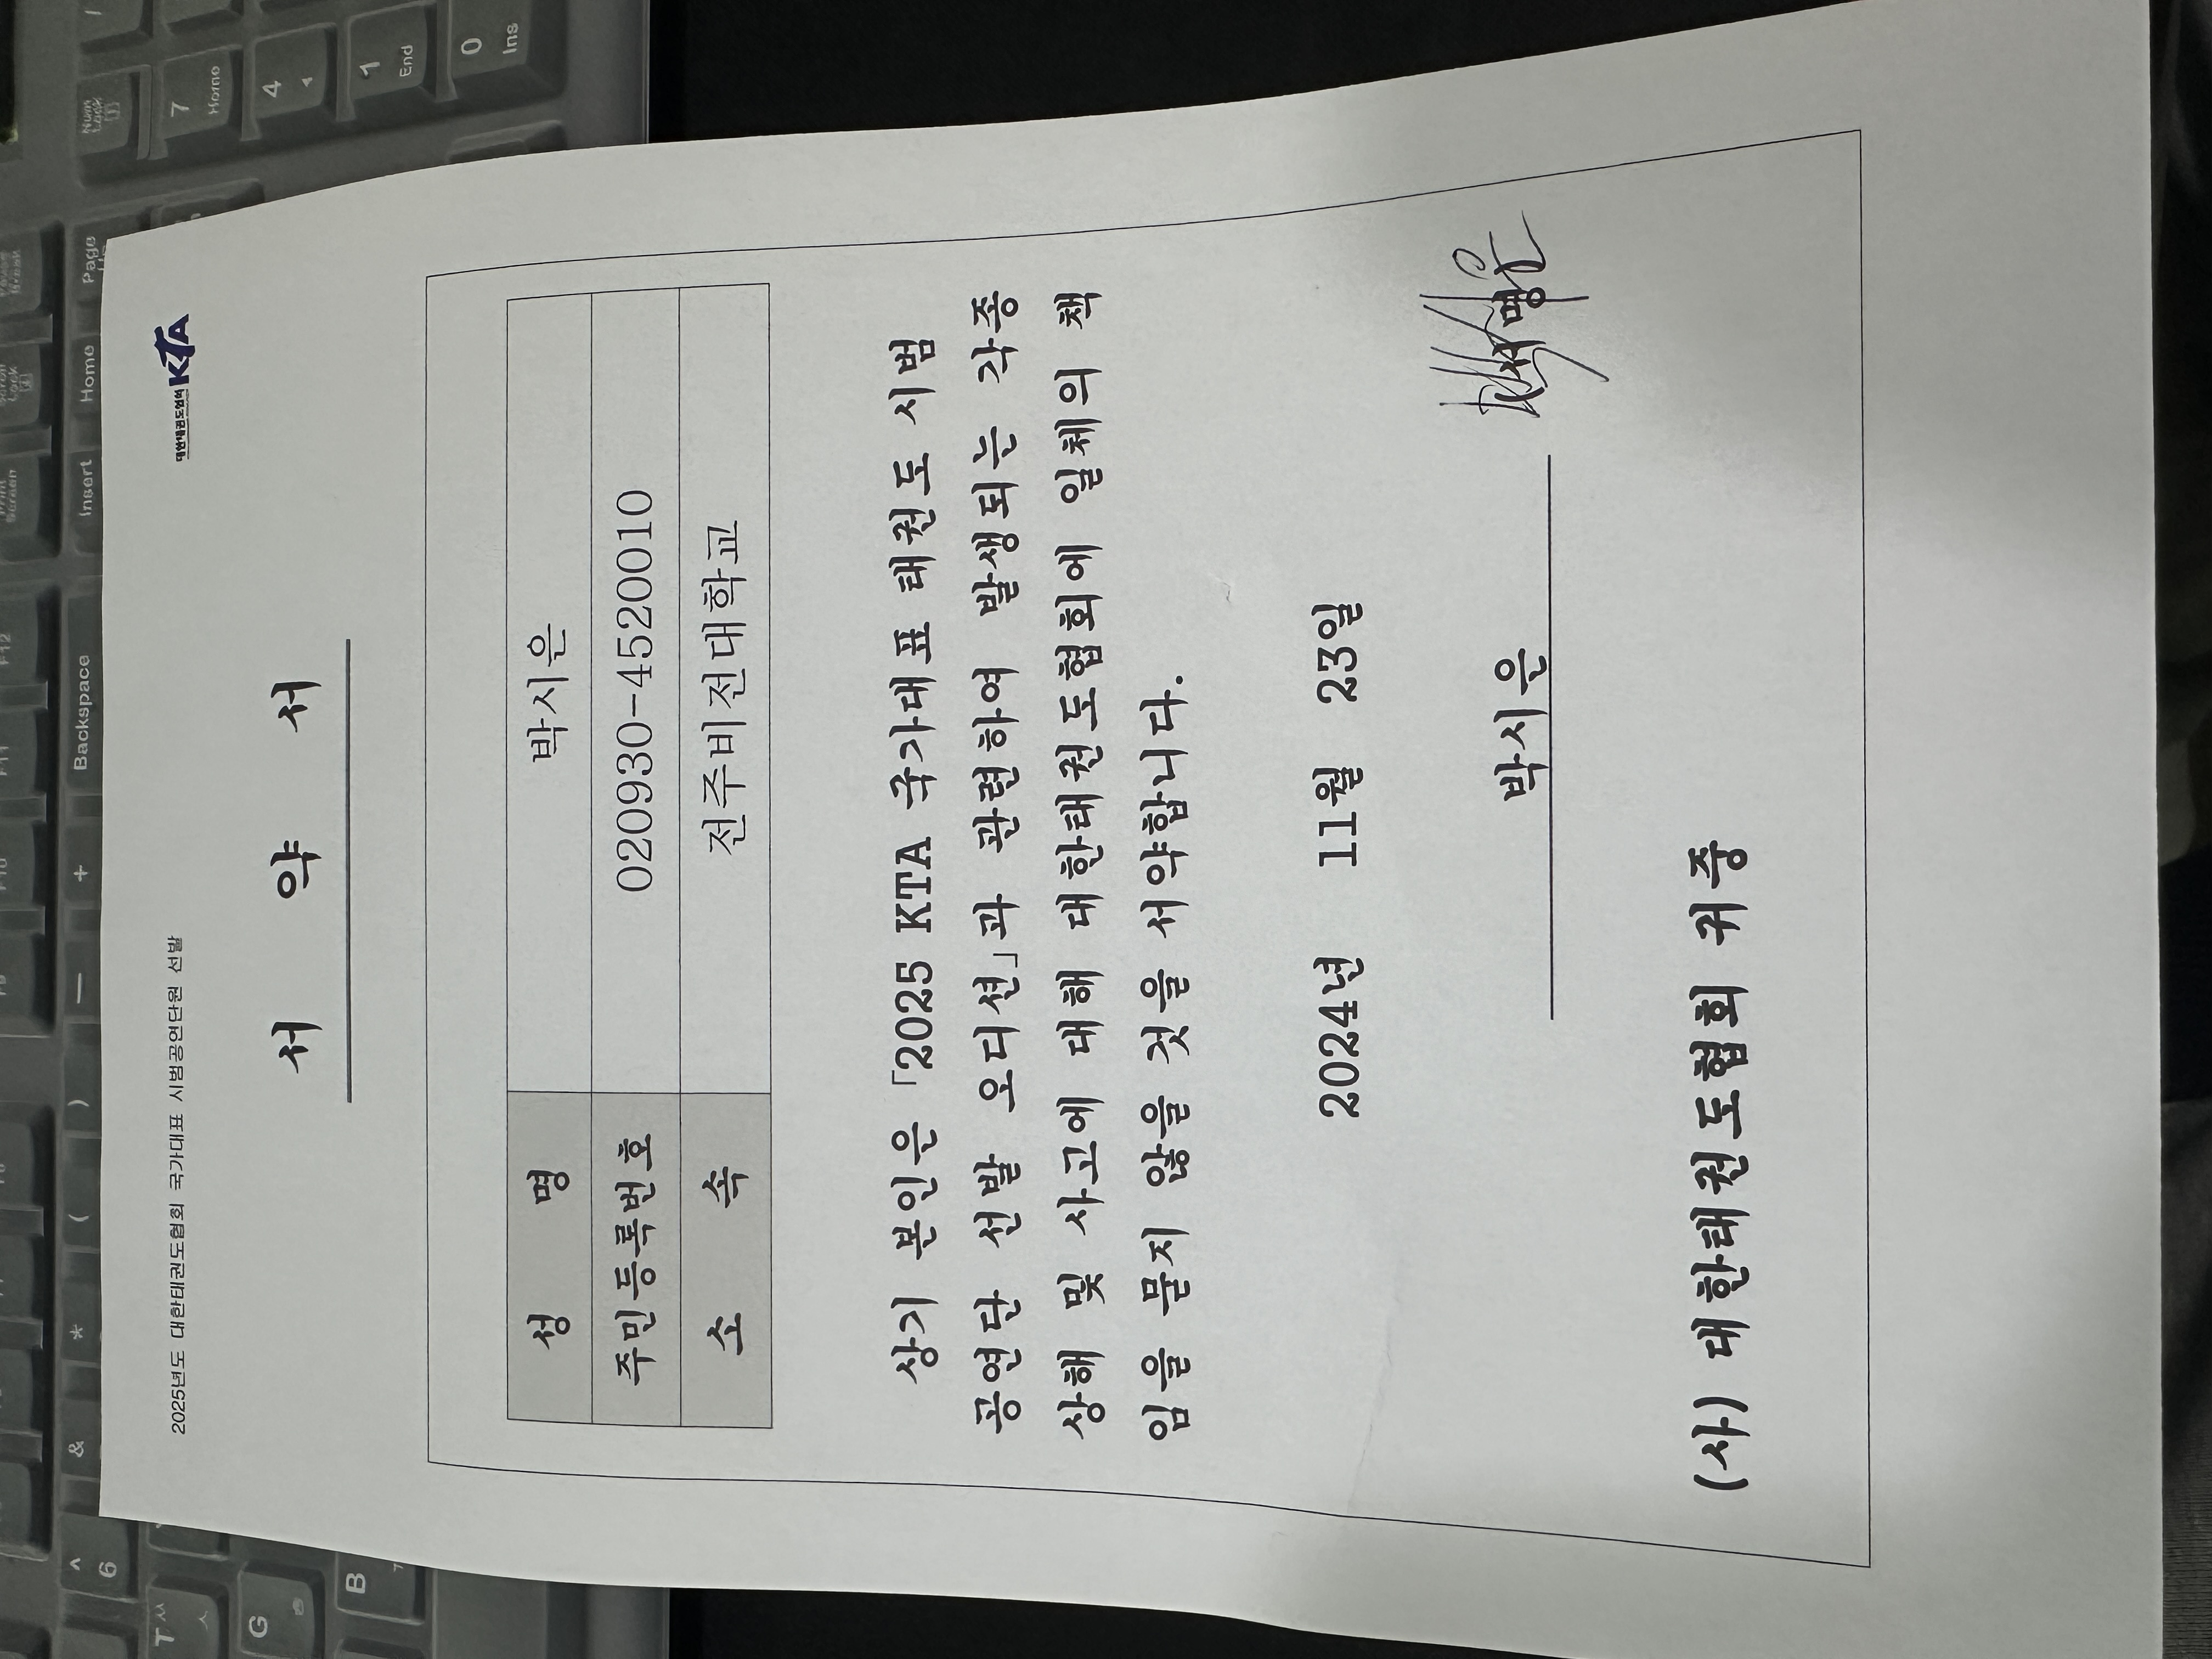 2025년도 대한태권도협회 국가대표 시범공연단원 선발
대한태권도협회 KTA
서 약 서
성 명 박시은
주민등록번호 020930-4520010
소 속 전주비전대학교
상기 본인은 「2025 KTA 국가대표 태권도 시범
공연단 선발 오디션」과 관련하여 발생되는 각종
상해 및 사고에 대해 대한태권도협회에 일체의 책
임을 묻지 않을 것을 서약합니다.
2024년 11월 23일
박시은 서명
(사) 대한태권도협회 귀중
Num Lock
7 Home
4
1 End
0 Ins
Page
Home
Insert
Backspace
+
—
)
(
*
&
^ 6
T ㅆ ㅅ
G
B